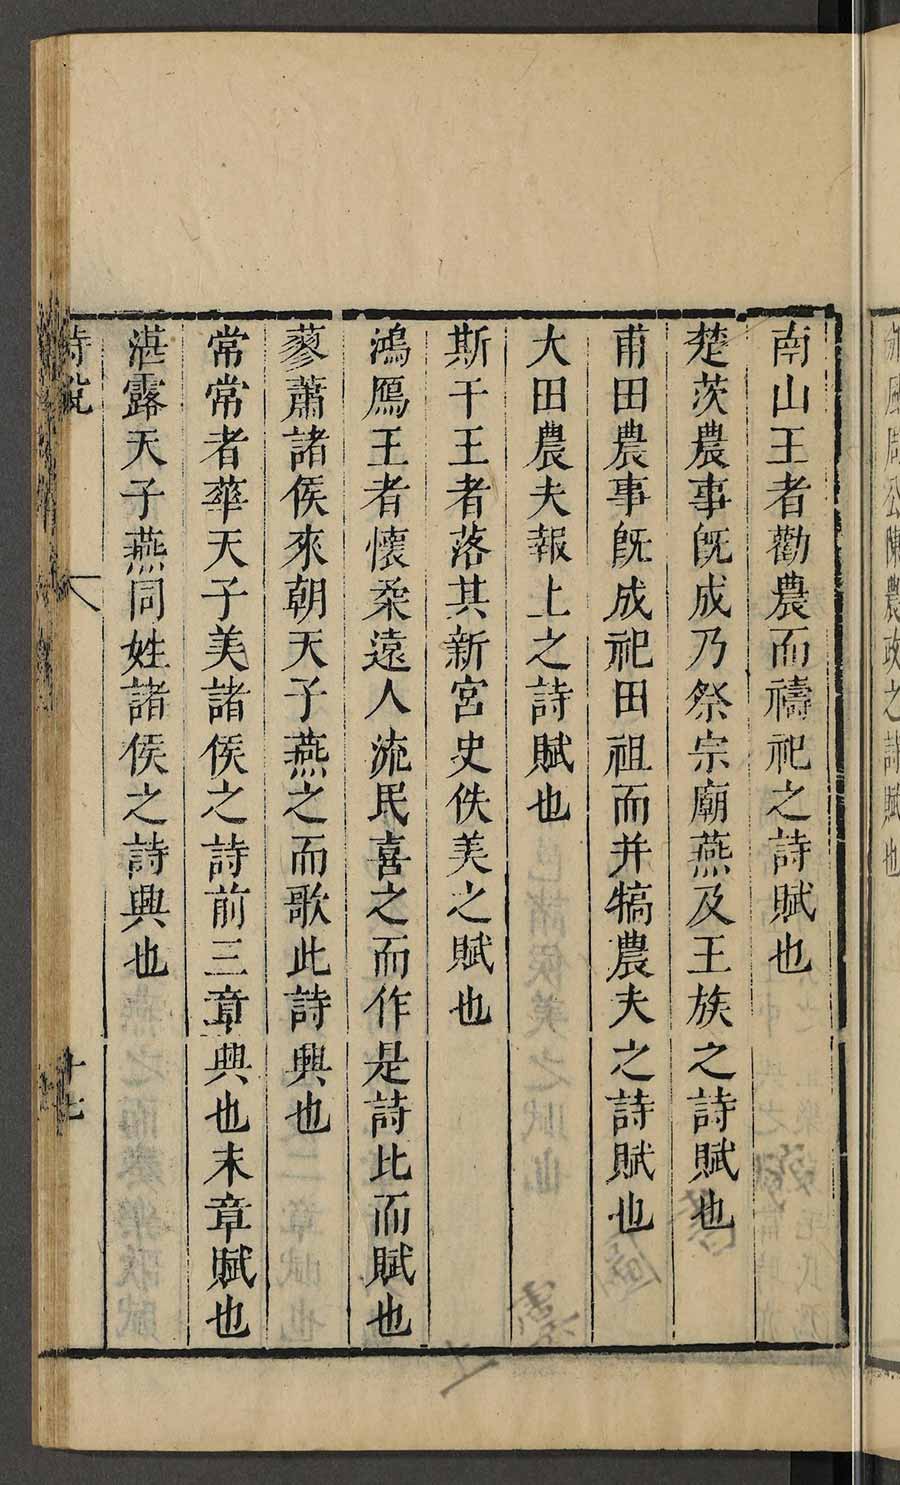 豳風周公陳農政之詩賦也
南山王者勸農而禱祀之詩賦也
楚茨農事旣成乃祭宗廟燕及王族之詩賦也
甫田農事旣成祀田祖而并犒農夫之詩賦也
大田農夫報上之詩賦也
斯干王者落其新宮史佚美之賦也
鴻鴈王者懷柔遠人流民喜之而作是詩比而賦也
蓼蕭諸侯來朝天子燕之而歌此詩興也
常常者華天子美諸侯之詩前三章興也末章賦也
湛露天子燕同姓諸侯之詩興也
詩說
十七